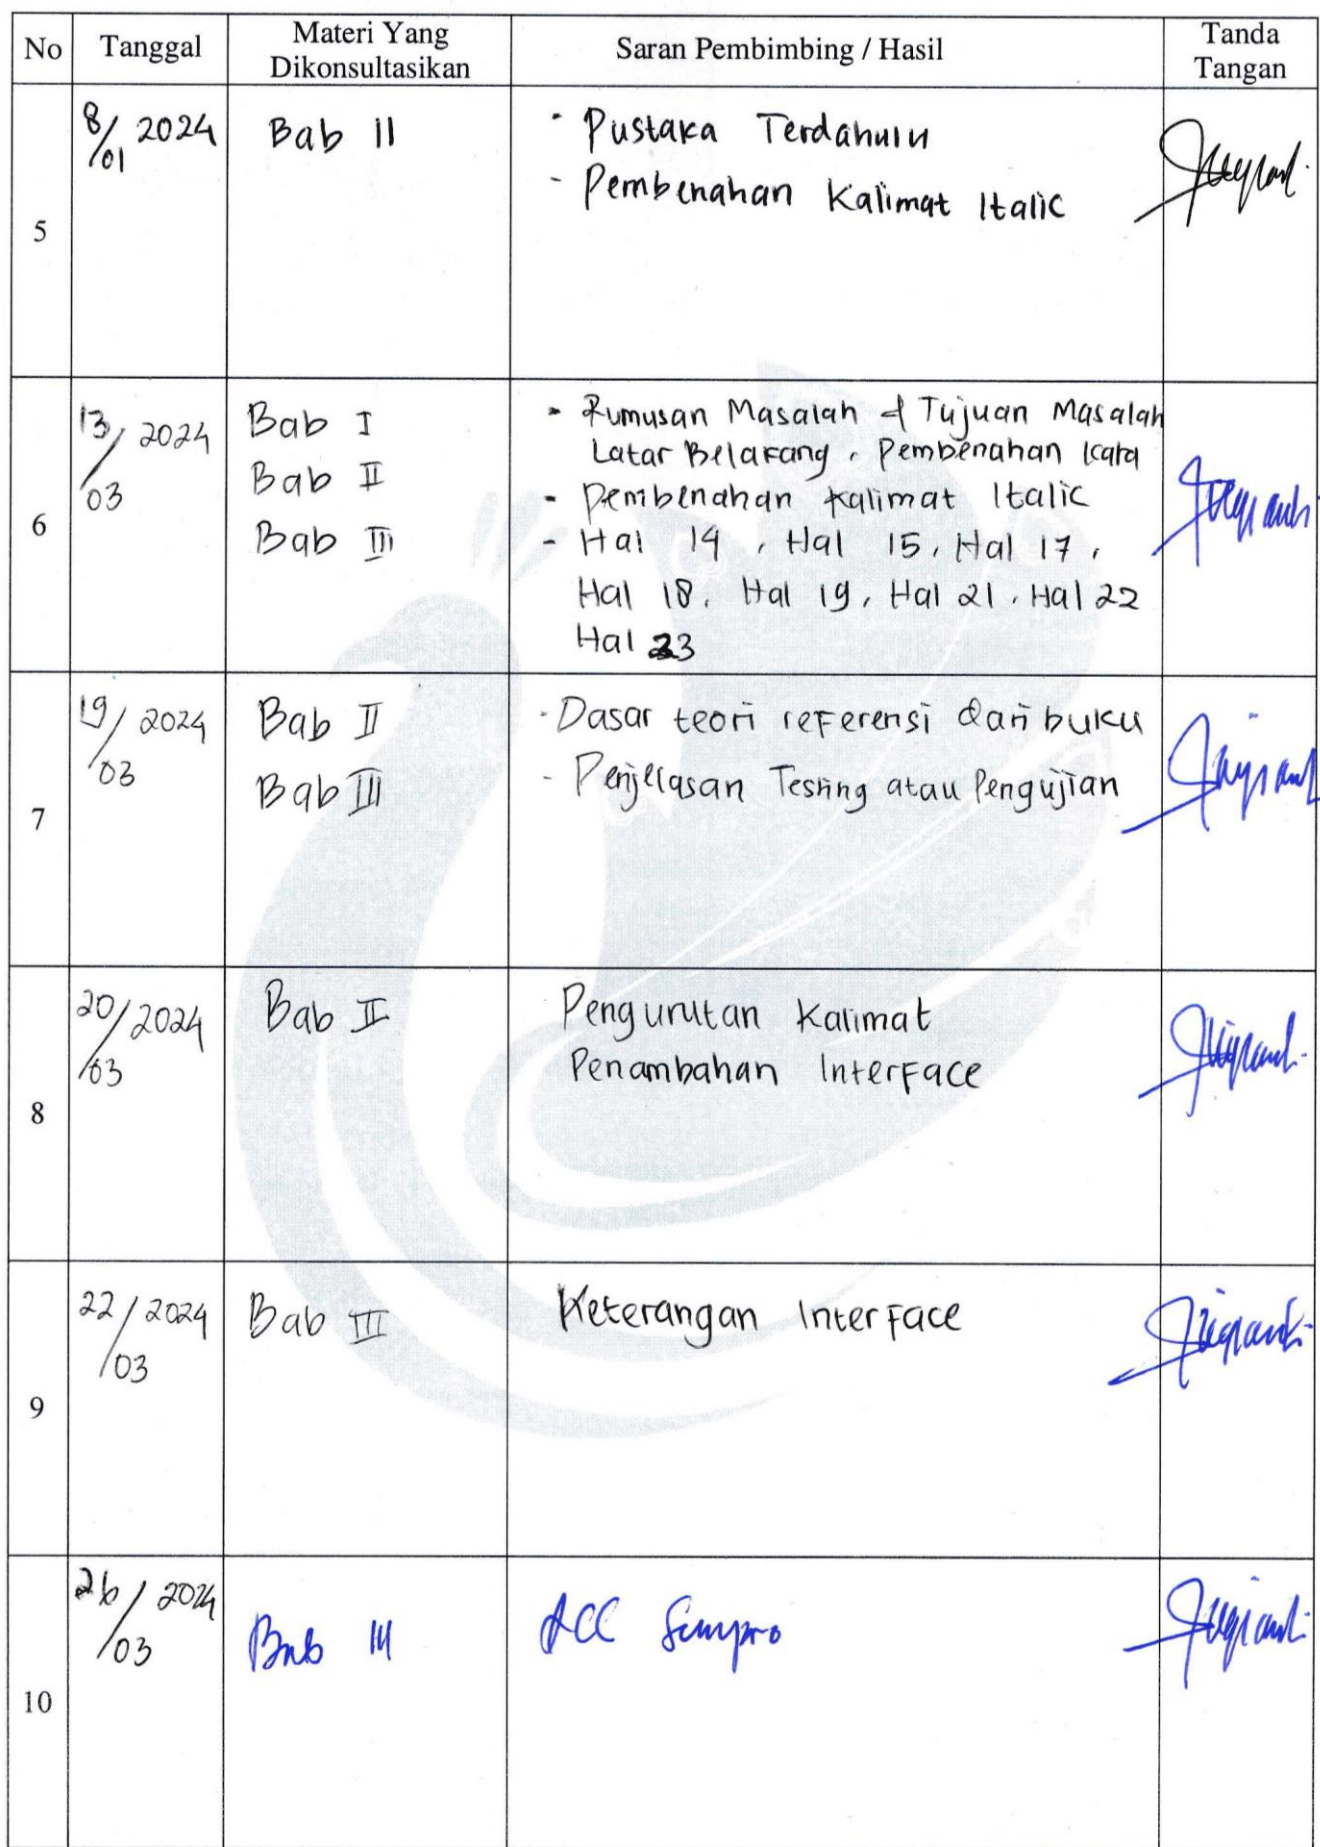 No
Tanggal
Materi Yang
Dikonsultasikan
Saran Pembimbing / Hasil
Tanda
Tangan
5
8/01 2024
Bab II
- Pustaka Terdahulu
- Pembenahan Kalimat Italic
6
13/03 2024
Bab I
Bab II
Bab III
- Rumusan Masalah & Tujuan Masalah
Latar Belakang, Pembenahan kata
- Pembenahan kalimat Italic
- Hal 14, Hal 15, Hal 17,
Hal 18, Hal 19, Hal 21, Hal 22
Hal 23
7
19/03 2024
Bab II
Bab III
- Dasar teori referensi dari buku
- Penjelasan Testing atau Pengujian
8
20/03 2024
Bab II
Pengurutan Kalimat
Penambahan Interface
9
22/03 2024
Bab III
Keterangan Interface
10
26/03 2024
Bab III
ACC Sempro